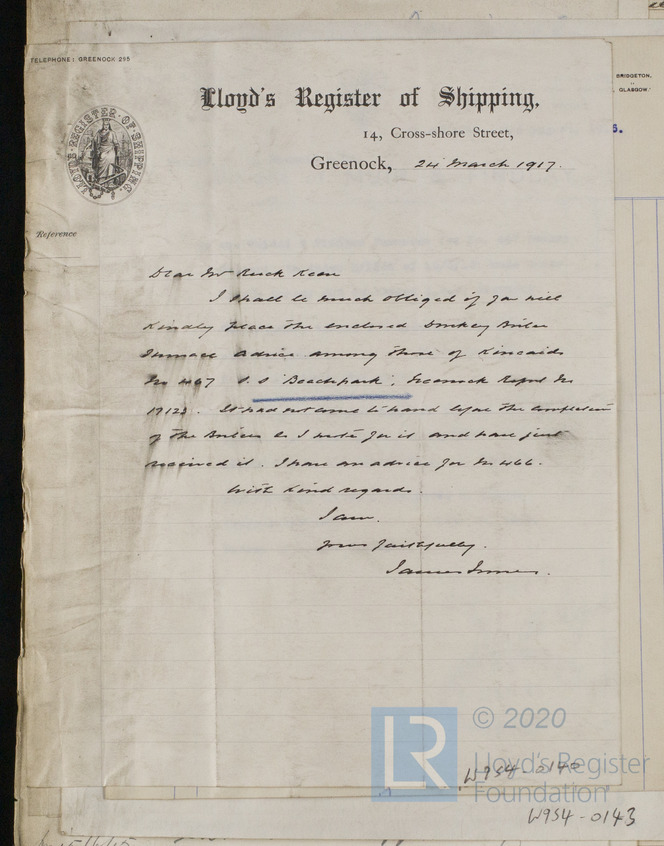 TELEPHONE: GREENOCK 295
BRIDGETON,
GLASGOW.
Lloyd's Register of Shipping,
14, Cross-shore Street,
Greenock, 24 March 1917.
LLOYD'S REGISTER OF SHIPPING
Reference
Dear Mr Buck Keen
I shall be much obliged if you will
kindly place the enclosed Donkey Boiler
Furnace advice among those of Kincaids
No 467 S.S 'Beechpark', Greenock Report No
17123. It had not come to hand before the completion
of the Boiler so I wrote for it and have just
received it. I have an advice for No 466.
With kind regards.
I am.
Yours faithfully.
James Innes.
LR
© 2020
Lloyd's Register
Foundation
W954-0140
W954-0143